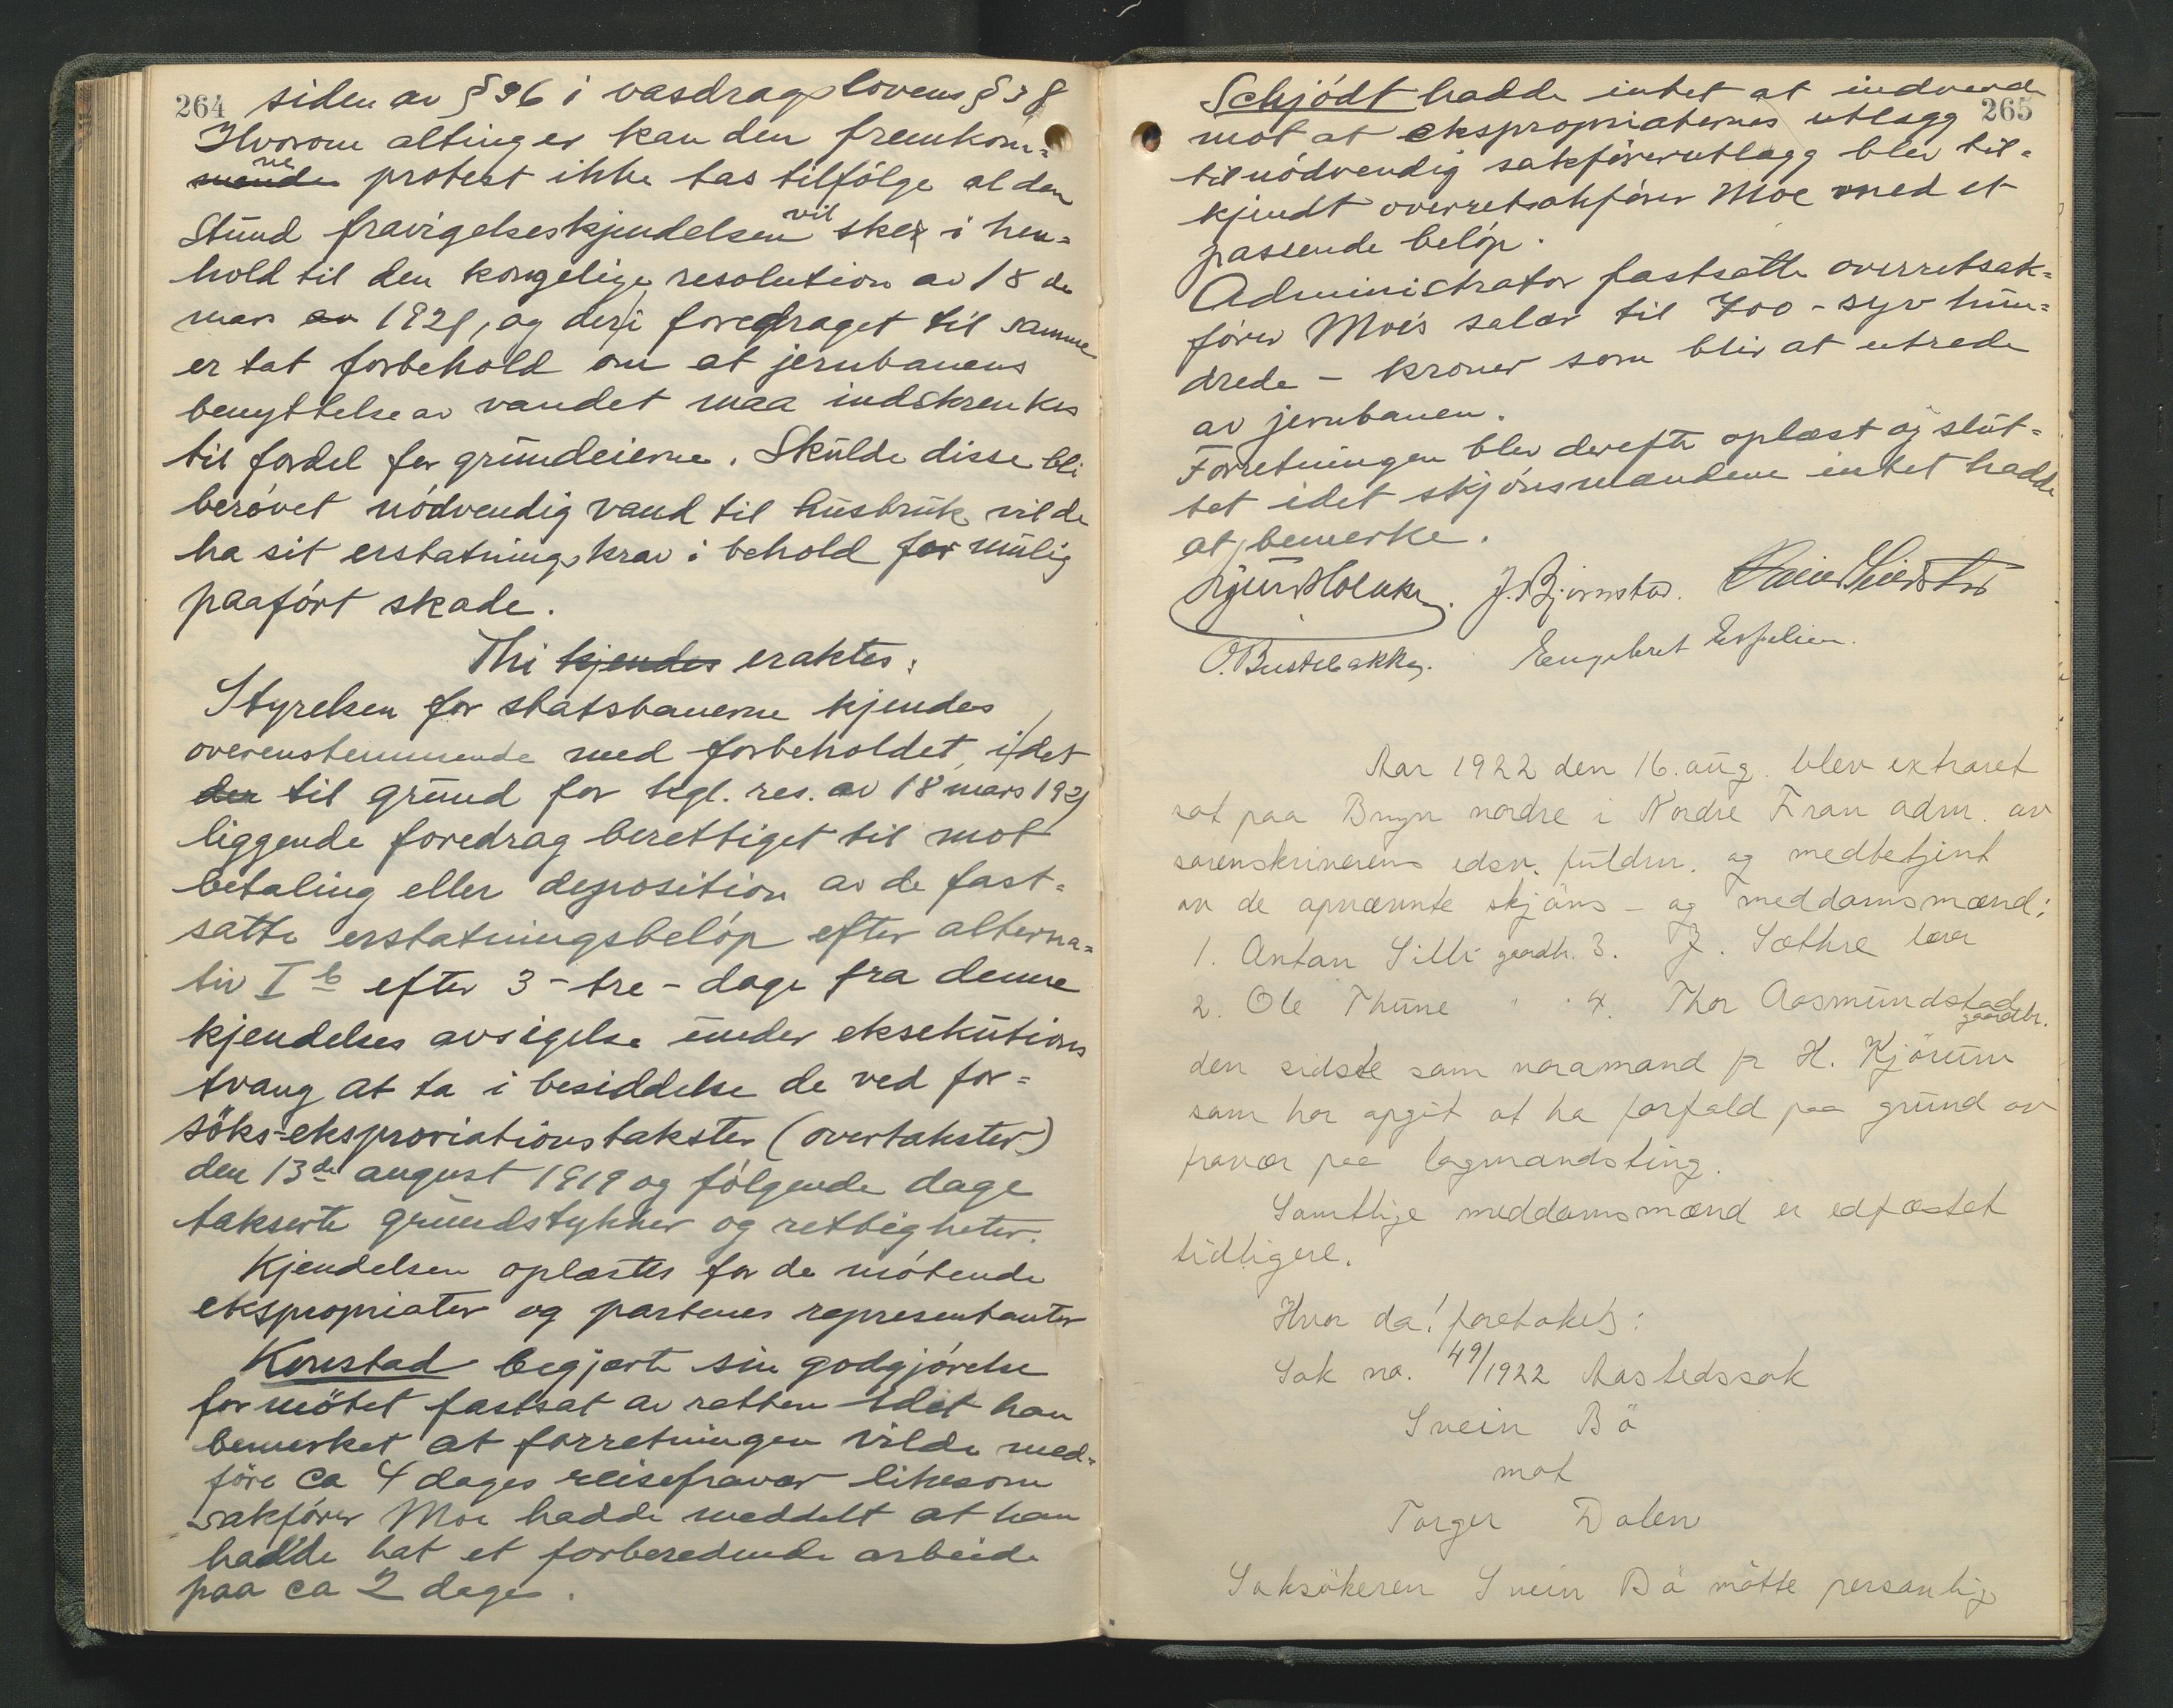 264
siden av § 36 i vasdragslovens § 38
Hvorom alting er kan den fremkom-
ne protest ikke tas tilfölge al den
Stund fravigelseskjendelsen vil ske i hen-
hold til den kongelige resolution av 18 de
mars 1921, og der i foredraget til samme
er tat forbehold om at jernbanens
benyttelse av vandet maa indskrenkes
til fordel for grundeierne. Skulde disse bli
berövet nödvendig vand til husbruk vil de
ha sit erstatningskrav i behold for mulig
paafört skade.
Thi kjendes eraktes:
Styrelsen for statsbanerne kjendes
overenstemmende med forbeholdet, i det
den til grund for kgl. res. av 18 mars 1921
liggende foredrag berettiget til mot
betaling eller deposition av de fast-
satte erstatningsbelöp efter alterna-
tiv I b efter 3 - tre - dage fra denne
kjendelses avsigelse under eksekutions
tvang at ta i besiddelse de ved for-
söks-ekspropriationstakster (overtakster)
den 13de august 1919 og fölgende dage
takserte grundstykker og rettigheter.
Kjendelsen oplæstes for de mötende
ekspropriater og partenes representanter
Konstad begjærte sin godtgjörelse
for mötet fastsat av retten idet han
bemerket at forretningen vilde med-
före ca 4 dages reisefravær likesom
sakförer Moe hadde meddelt at han
hadde hat et forberedende arbeide
paa ca 2 dage.
265
Schjödt hadde intet at indvende
mot at ekspropriaternes utlægg
til nödvendig sakförerutlægg blev til-
kjendt overretsakförer Moe med et
passende belöp.
Administrator fastsatte overretssak-
förer Moe's salær til 700 - syv hun-
drede - kroner som blir at utrede
av jernbanen.
Forretningen blev derefter oplæst og slut-
tet idet skjönsmændene intet hadde
at bemerke.
J. Bjørnstad.
O. Bustebakke. Engebret Espelien.
Aar 1922 den 16. aug. blev extraret
sat paa Bryn nordre i Nordre Fron adm. av
sorenskriverens edsv. fuldm. og medbetjent
av de opnævnte skjöns- og meddomsmænd:
1. Anton Silli gaardbr. 3. J. Sæthre lærer
2. Ole Thune " 4. Thor Aasmundstad
gaardbr.
den sidste som varamand for H. Kjörum
som har opgit at ha forfald paa grund av
fravær paa lagmandsting.
Samtlige meddomsmænd er edfæstet
tidligere.
Hvor da! foretokes:
Sak no. 49/1922 Aastedssak
Svein Bö
mot
Torger Dalen
Saksökeren Svein Bö mötte personlig